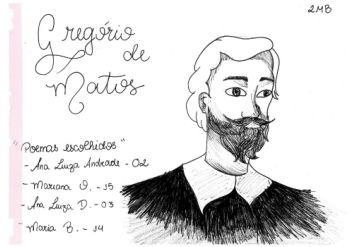 2MB
Gregório
de
Matos
"Poemas escolhidos"
- Ana Luiza Andrade - 02
- Mariana O. - 15
- Ana Luiza D. - 03
- Maria B. - 14